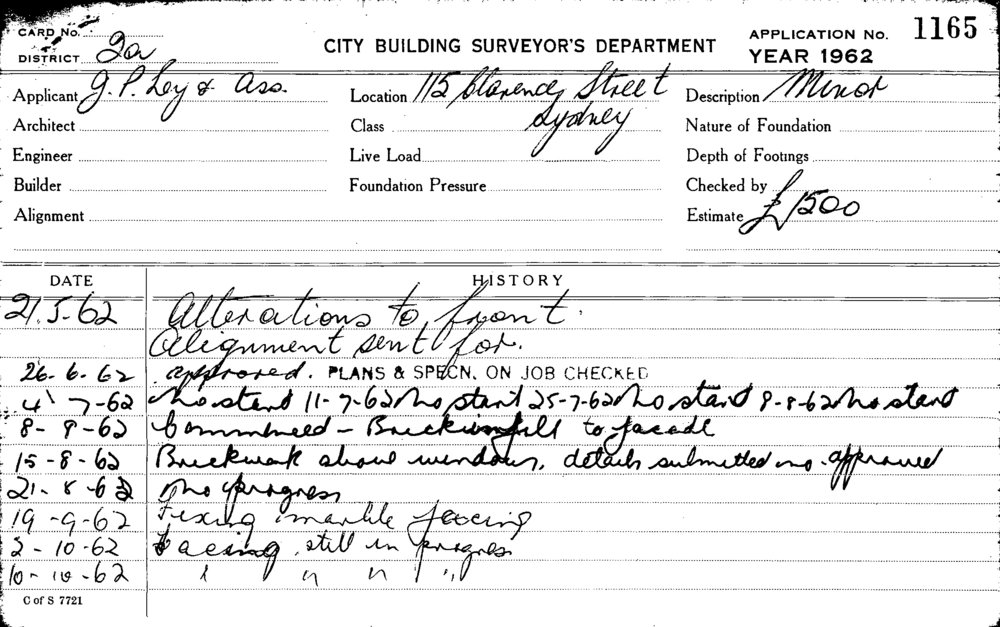 CARD No.
DISTRICT 2a
CITY BUILDING SURVEYOR'S DEPARTMENT
APPLICATION No. 1165
YEAR 1962
Applicant J. P. Ley & Ass.
Location 115 Clarence Street
Sydney
Description Minor
Architect
Class
Nature of Foundation
Engineer
Live Load
Depth of Footings
Builder
Foundation Pressure
Checked by
Alignment
Estimate £1500
DATE HISTORY
21.5-62 Alterations to front.
Alignment sent for.
26-6-62 approved. PLANS & SPECN. ON JOB CHECKED
4-7-62 No start 11-7-62 No start 25-7-62 No start 8-8-62 No start
8-8-62 Commenced - Brick infill to facade
15-8-62 Brickwork above windows, details submitted approved
21-8-62 No progress
19-9-62 Fixing marble facing
2-10-62 Facing still in progress
10-10-62 " " " "
C of S 7721